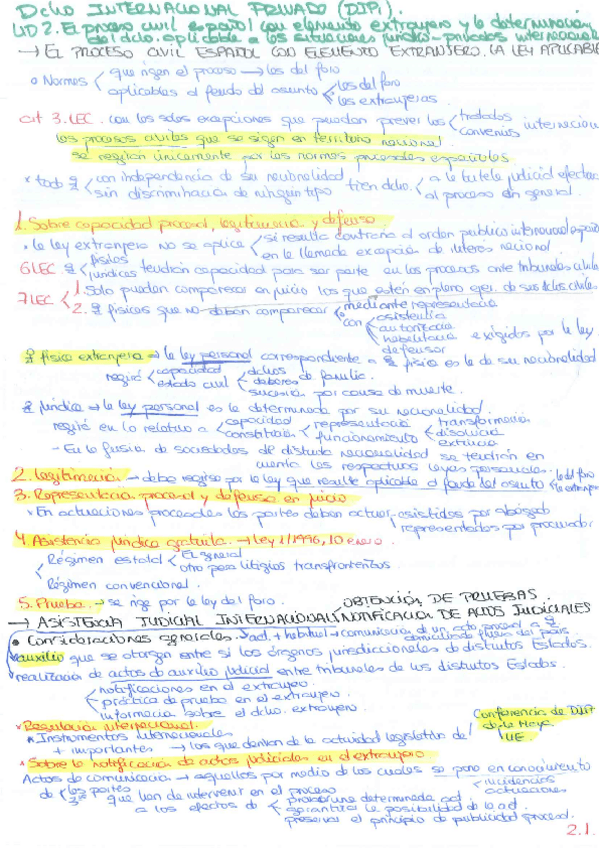 Dcho INTERNACIONAL PRIVADO (DIPr).
UD 2. El proceso civil español con elemento extranjero y la determinación
del dcho. aplicable a las situaciones jurídico-privadas internacionales
→ EL PROCESO CIVIL ESPAÑOL CON ELEMENTO EXTRANJERO. LA LEY APLICABLE
o Normas que rigen el proceso → las del foro
aplicables al fondo del asunto las del foro
las extranjeras.
art 3. LEC. con las solas excepciones que puedan prever los tratados
convenios internacion
los procesos civiles que se sigan en territorio nacional
se regirán únicamente por las normas procesales españolas.
* toda con independencia de su nacionalidad
sin discriminación de ningún tipo tien dcho. a la tutela judicial efectiva
al proceso en general.
1. Sobre capacidad procesal, legitimación y defensa
• la ley extranjera no se aplica si resulta contraria al orden público internacional español
en la llamada excepción de interés nacional.
6 LEC físicas
jurídicas tendrán capacidad para ser parte en los procesos ante tribunales civiles
7 LEC 1. Solo pueden comparecer en juicio los que estén en pleno ejer. de sus dchos civiles
2. físicas que no deban comparecer mediante representación
con asistencia
autorización
habilitación exigidos por la ley.
defensor
física extranjera → la ley personal correspondiente a física es la de su nacionalidad
regirá capacidad
estado civil dchos
deberes de familia.
sucesión por causa de muerte.
jurídica → la ley personal es la determinada por su nacionalidad.
regirá en lo relativo a capacidad
constitución representación
funcionamiento transformación
disolución
extinción
- En la fusión de sociedades de distinta nacionalidad se tendrán en
cuenta las respectivas leyes personales.
2. Legitimación → debe regirse por la ley que resulte aplicable al fondo del asunto la del foro
la extranjera
3. Representación procesal y defensa en juicio
• En actuaciones procesales las partes deben actuar asistidas por abogado
representados por procurador
4. Asistencia jurídica gratuita. → Ley 1/1996, 10 enero
Régimen estatal El general
otro para litigios transfronterizos
Régimen convencional.
5. Prueba. → se rige por la ley del foro.
→ ASISTENCIA JUDICIAL INTERNACIONAL: OBTENCIÓN DE PRUEBAS.
NOTIFICACIÓN DE ACTOS JUDICIALES
• Consideraciones generales. act. + habitual → comunicación de un acto procesal a
domiciliado fuera del país
auxilio que se otorgan entre sí los órganos jurisdiccionales de distintos Estados.
realización de actos de auxilio judicial entre tribunales de los distintos Estados.
notificaciones en el extranjero
práctica de prueba en el extranjero
información sobre el dcho. extranjero.
* Regulación internacional.
* Instrumentos internacionales
+ importantes → los que derivan de la actividad legislativa de Conferencia de DIPr
de la Haya.
UE.
* Sobre la notificación de actos judiciales en el extranjero
Actos de comunicación → aquellos por medio de los cuales se pone en conocimiento
de las partes
3os que han de intervenir en el proceso incidencias
actuaciones
a los efectos de producir una determinada act.
garantizar la posibilidad de la act.
preservar el principio de publicidad procesal.
2.1.